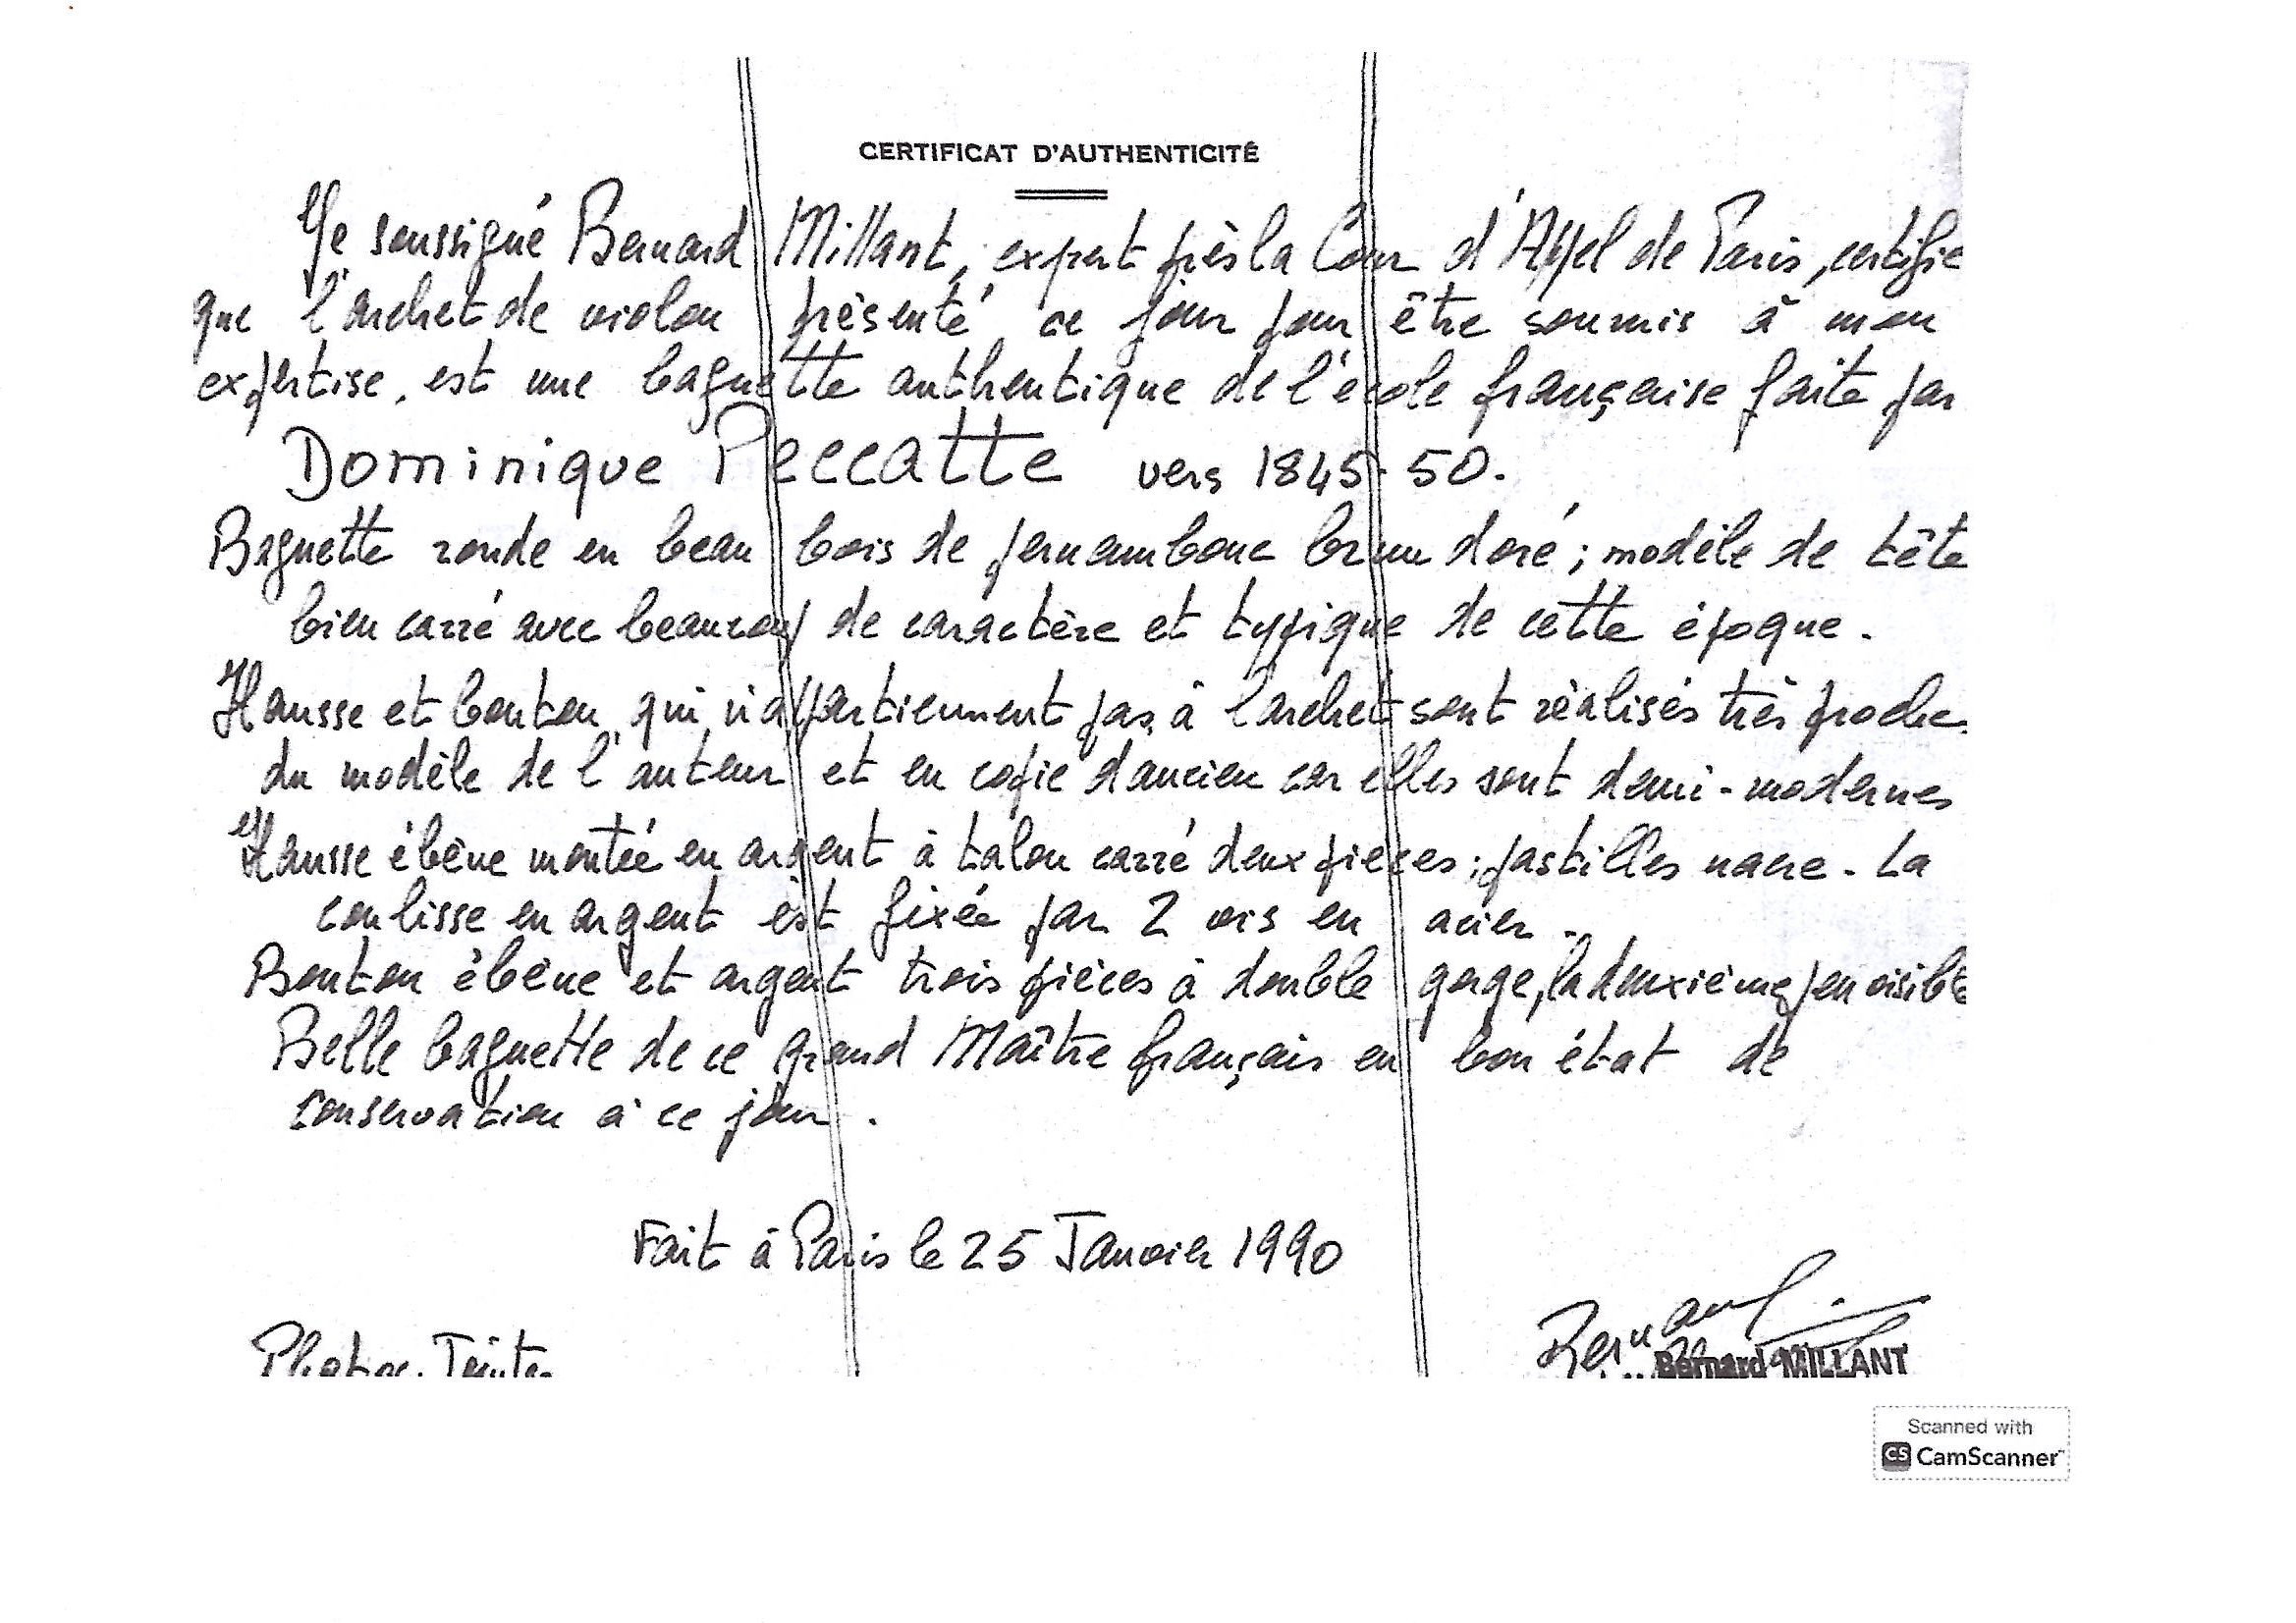 CERTIFICAT D'AUTHENTICITÉ
Je soussigné Bernard Millant, expert près la Cour d'Appel de Paris, certifie
que l'archet de violon présenté ce jour pour être soumis à mon
expertise, est une baguette authentique de l'école française faite par
Dominique Peccatte vers 1845-50.
Baguette ronde en beau bois de pernambouc brun doré ; modèle de tête
bien carré avec beaucoup de caractère et typique de cette époque.
Hausse et bouton qui n'appartiennent pas à l'archet sont réalisés très proche
du modèle de l'auteur et en copie d'ancien car elles sont demi-modernes
Hausse ébène montée en argent à talon carré deux pièces ; pastilles nacre - La
coulisse en argent est fixée par 2 vis en acier.
Bouton ébène et argent trois pièces à double gorge, la deuxième peu visible
Belle baguette de ce grand Maître français en bon état de
conservation à ce jour.
Fait à Paris le 25 Janvier 1990
Bernard
Bernard MILLANT
Scanned with
CS CamScanner